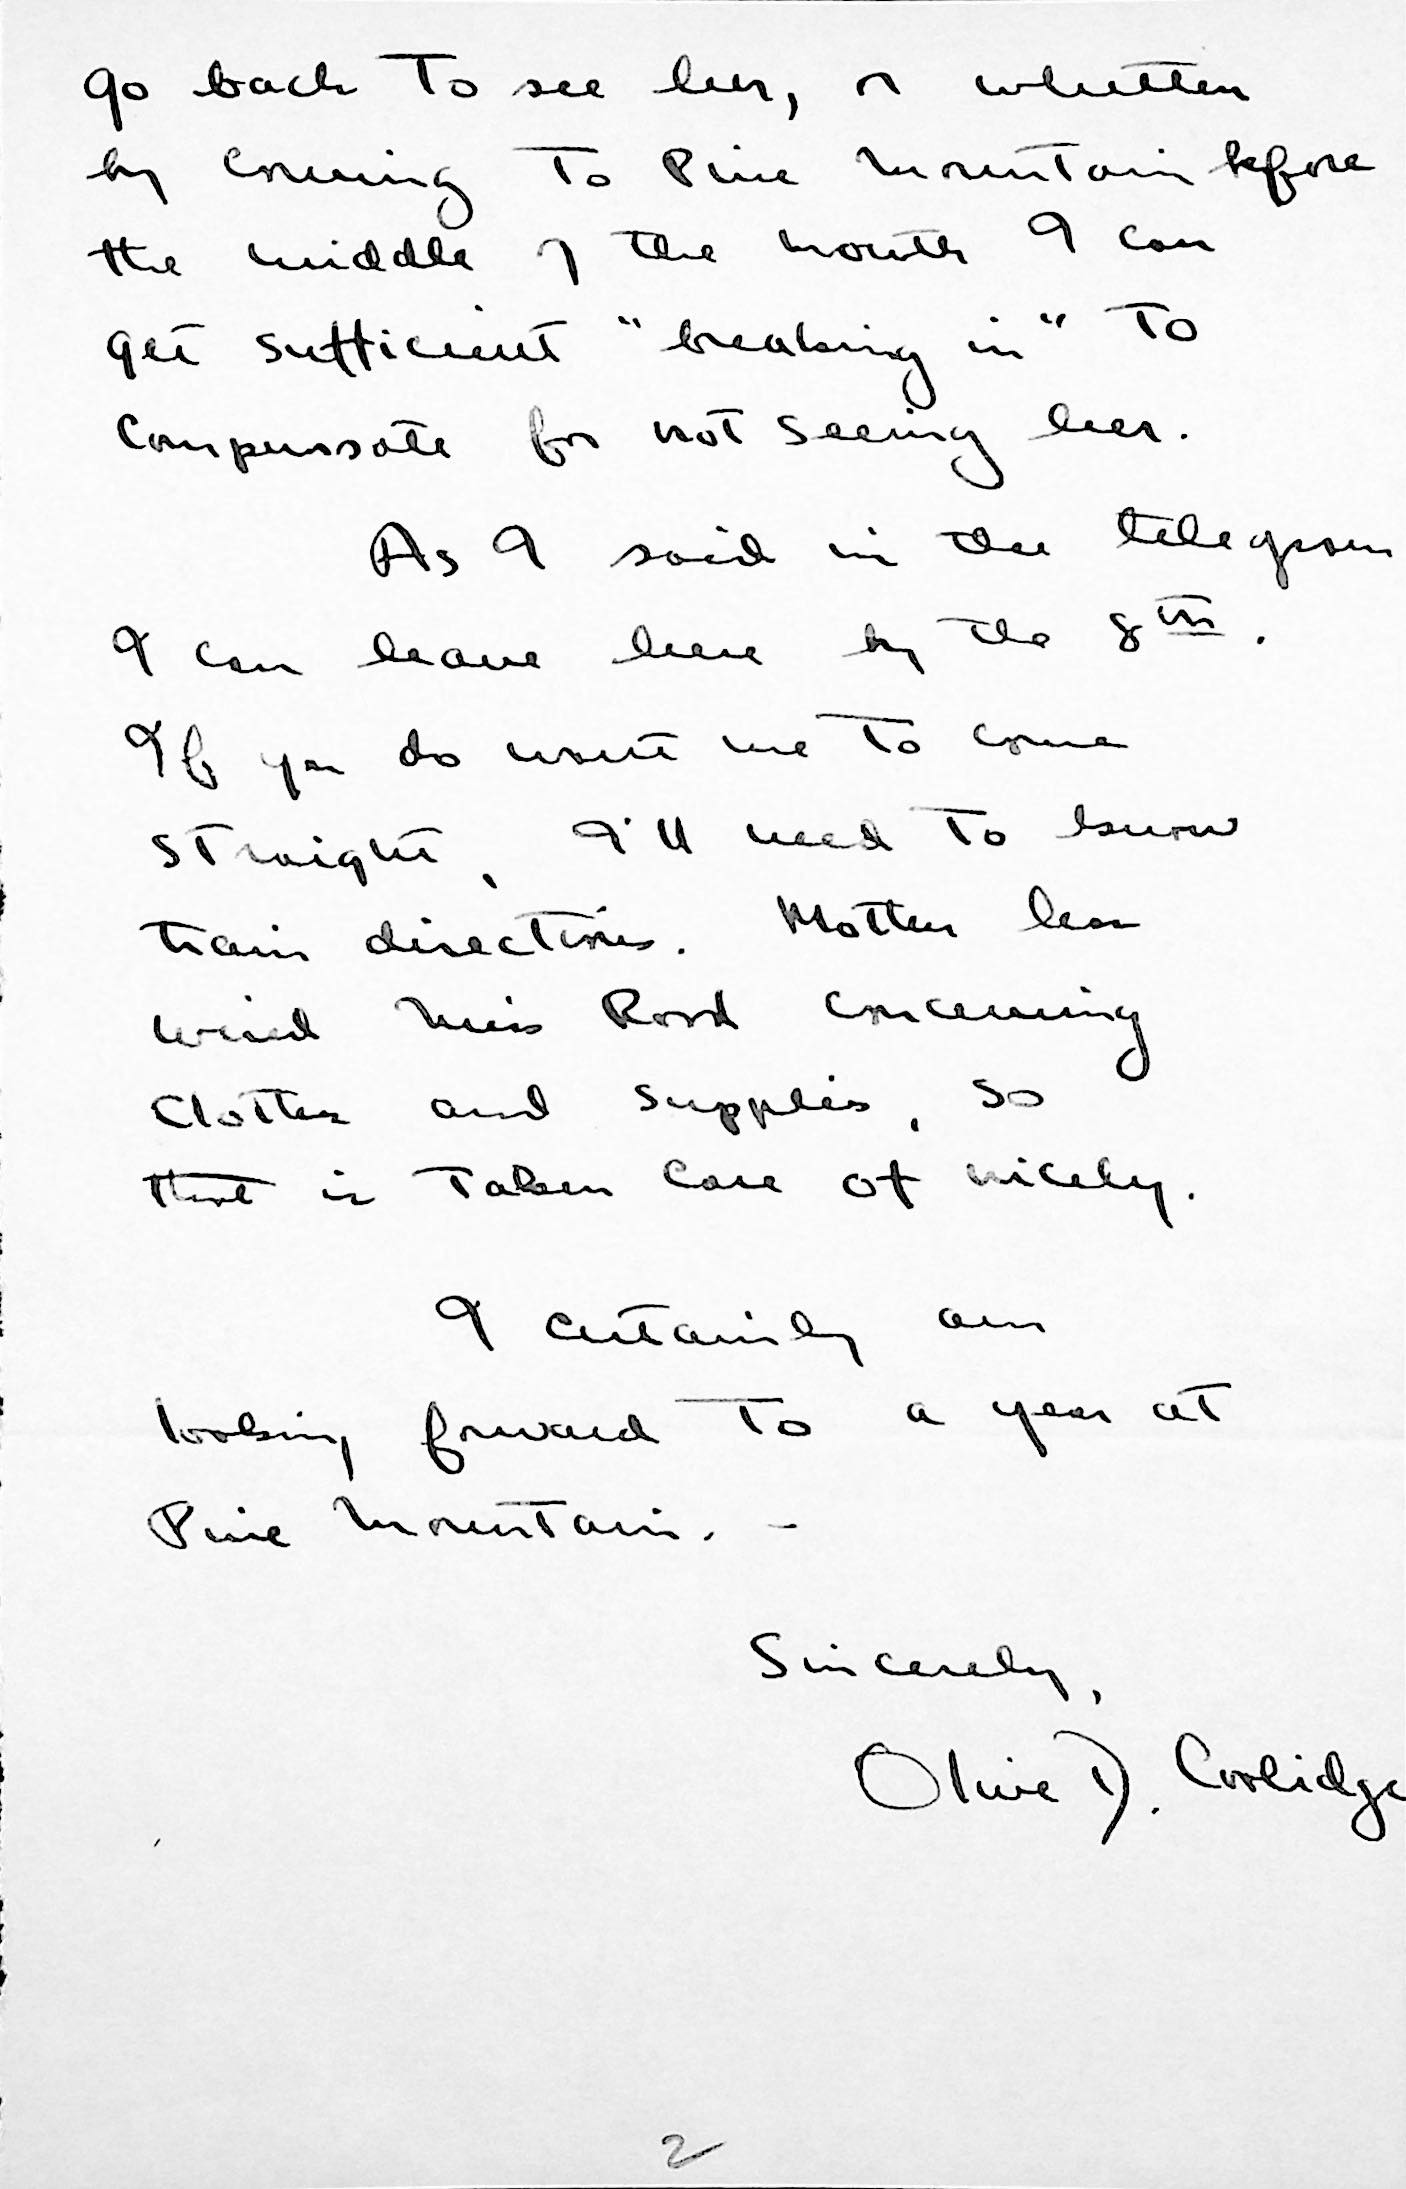 go back to see her, or whether
by coming to Pine Mountain before
the middle of the month I can
get sufficient "breaking in" to
compensate for not seeing her.
As I said in the telegram
I can leave here by the 8th.
If you do want me to come
straight, I'll need to know
train directions. Mother has
wired Miss Rood concerning
clothes and supplies, so
that is taken care of nicely.
I certainly am
looking forward to a year at
Pine Mountain. -
Sincerely,
Olive D. Coolidge
2